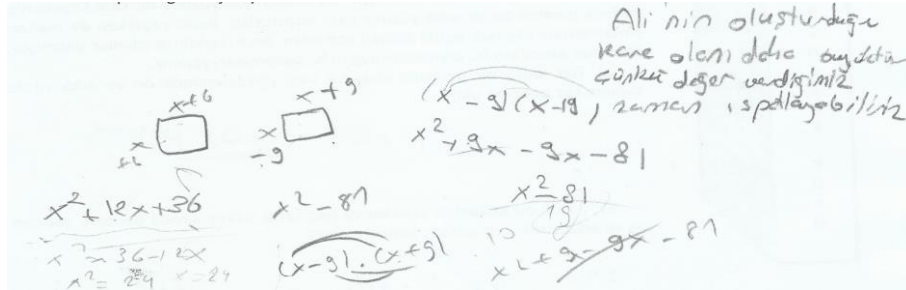 Ali'nin oluşturduğu
kare alanı daha büyüktür
çünkü değer verdiğimiz
zaman ispatlayabiliriz
x+6
x+9
x
+6
x
-9
(x-9)(x+9)
x²+9x-9x-81
x²+12x+36
x²-81
x²-81
19
x²=36-12x
x²=24 x=24
(x-9).(x+9)
x²+9-9x-81